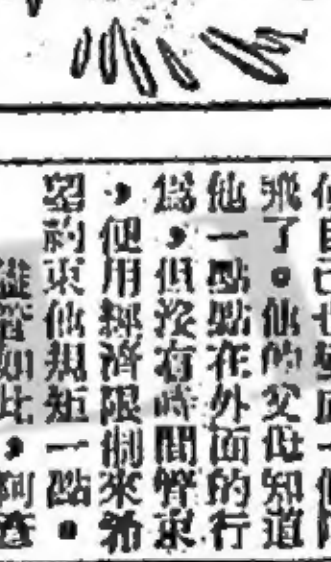 了。他的父母知道
他一點點在外面的行
爲,但沒有時間管束
,便用經濟限制來希
望約束他規矩一點。
管如此,阿